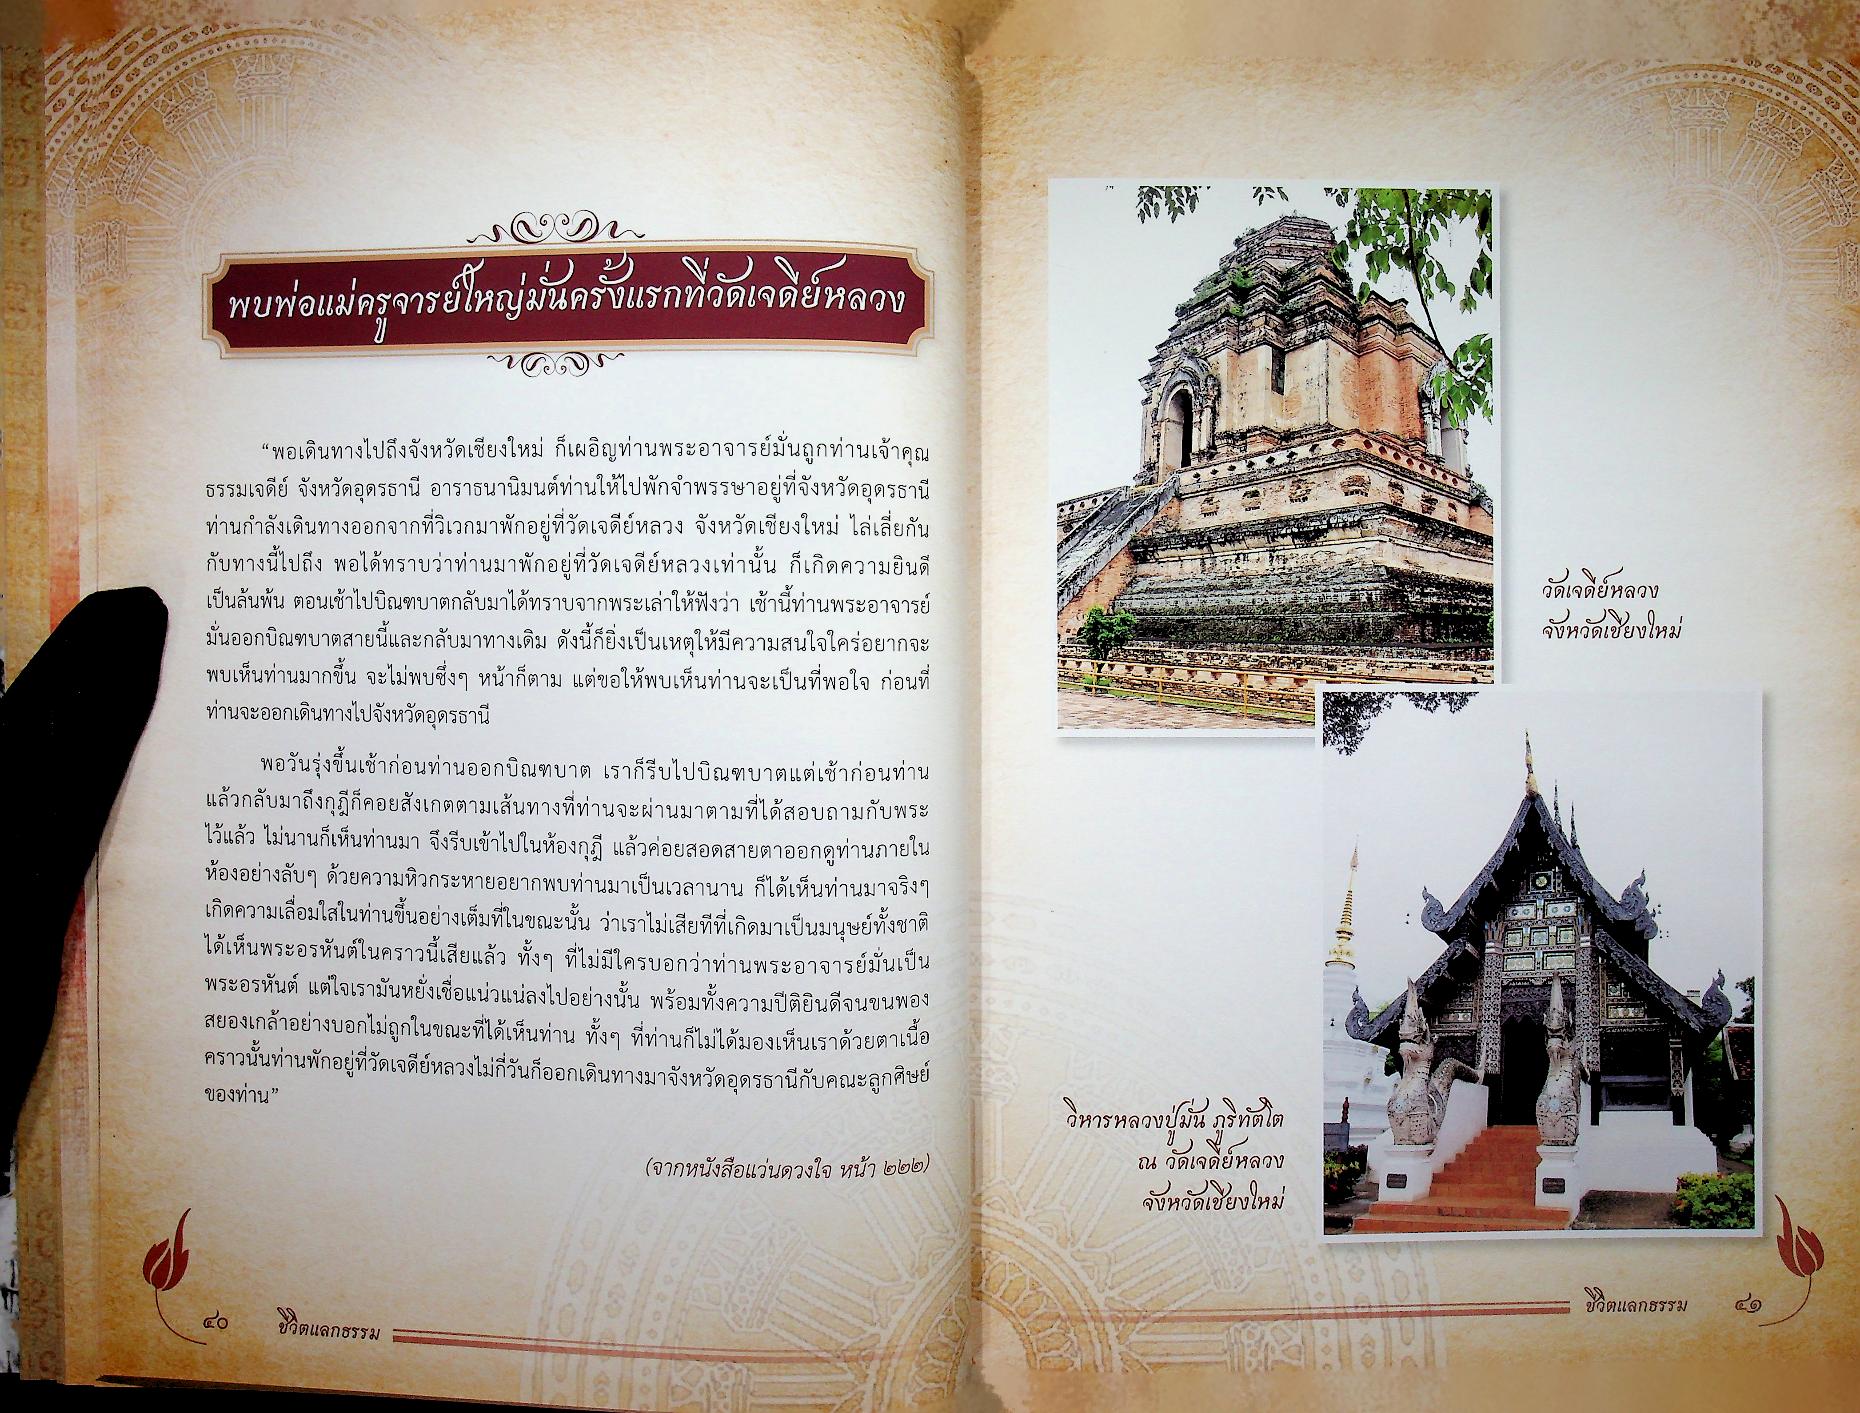 พบพ่อแม่ครูจารย์ใหญ่มั่นครั้งแรกที่วัดเจดีย์หลวง
“พอเดินทางไปถึงจังหวัดเชียงใหม่ ก็เผอิญท่านพระอาจารย์มั่นถูกท่านเจ้าคุณ
ธรรมเจดีย์ จังหวัดอุดรธานี อาราธนานิมนต์ท่านให้ไปพักจำพรรษาอยู่ที่จังหวัดอุดรธานี
ท่านกำลังเดินทางออกจากที่วิเวกมาพักอยู่ที่วัดเจดีย์หลวง จังหวัดเชียงใหม่ ไล่เลี่ยกัน
กับทางนี้ไปถึง พอได้ทราบว่าท่านมาพักอยู่ที่วัดเจดีย์หลวงเท่านั้น ก็เกิดความยินดี
เป็นล้นพ้น ตอนเช้าไปบิณฑบาตกลับมาได้ทราบจากพระเล่าให้ฟังว่า เช้านี้ท่านพระอาจารย์
มั่นออกบิณฑบาตสายนี้และกลับมาทางเดิม ดังนี้ก็ยิ่งเป็นเหตุให้มีความสนใจใคร่อยากจะ
พบเห็นท่านมากขึ้น จะไม่พบซึ่งๆ หน้าก็ตาม แต่ขอให้พบเห็นท่านจะเป็นที่พอใจ ก่อนที่
ท่านจะออกเดินทางไปจังหวัดอุดรธานี
พอวันรุ่งขึ้นเช้าก่อนท่านออกบิณฑบาต เราก็รีบไปบิณฑบาตแต่เช้าก่อนท่าน
แล้วกลับมาถึงกุฏีก็คอยสังเกตตามเส้นทางที่ท่านจะผ่านมาตามที่ได้สอบถามกับพระ
ไว้แล้ว ไม่นานก็เห็นท่านมา จึงรีบเข้าไปในห้องกุฏี แล้วค่อยสอดสายตาออกดูท่านภายใน
ห้องอย่างลับๆ ด้วยความหิวกระหายอยากพบท่านมาเป็นเวลานาน ก็ได้เห็นท่านมาจริงๆ
เกิดความเลื่อมใสในท่านขึ้นอย่างเต็มที่ในขณะนั้น ว่าเราไม่เสียทีที่เกิดมาเป็นมนุษย์ทั้งชาติ
ได้เห็นพระอรหันต์ในคราวนี้เสียแล้ว ทั้งๆ ที่ไม่มีใครบอกว่าท่านพระอาจารย์มั่นเป็น
พระอรหันต์ แต่ใจเรามันหยั่งเชื่อแน่วแน่ลงไปอย่างนั้น พร้อมทั้งความปีติยินดีจนขนพอง
สยองเกล้าอย่างบอกไม่ถูกในขณะที่ได้เห็นท่าน ทั้งๆ ที่ท่านก็ไม่ได้มองเห็นเราด้วยตาเนื้อ
คราวนั้นท่านพักอยู่ที่วัดเจดีย์หลวงไม่กี่วันก็ออกเดินทางมาจังหวัดอุดรธานีกับคณะลูกศิษย์
ของท่าน”
(จากหนังสือแว่นดวงใจ หน้า ๒๒๒)
๔๐ ชีวิตแลกธรรม
วัดเจดีย์หลวง
จังหวัดเชียงใหม่
วิหารหลวงปู่มั่น ภูริทัตโต
ณ วัดเจดีย์หลวง
จังหวัดเชียงใหม่
ชีวิตแลกธรรม ๔๑